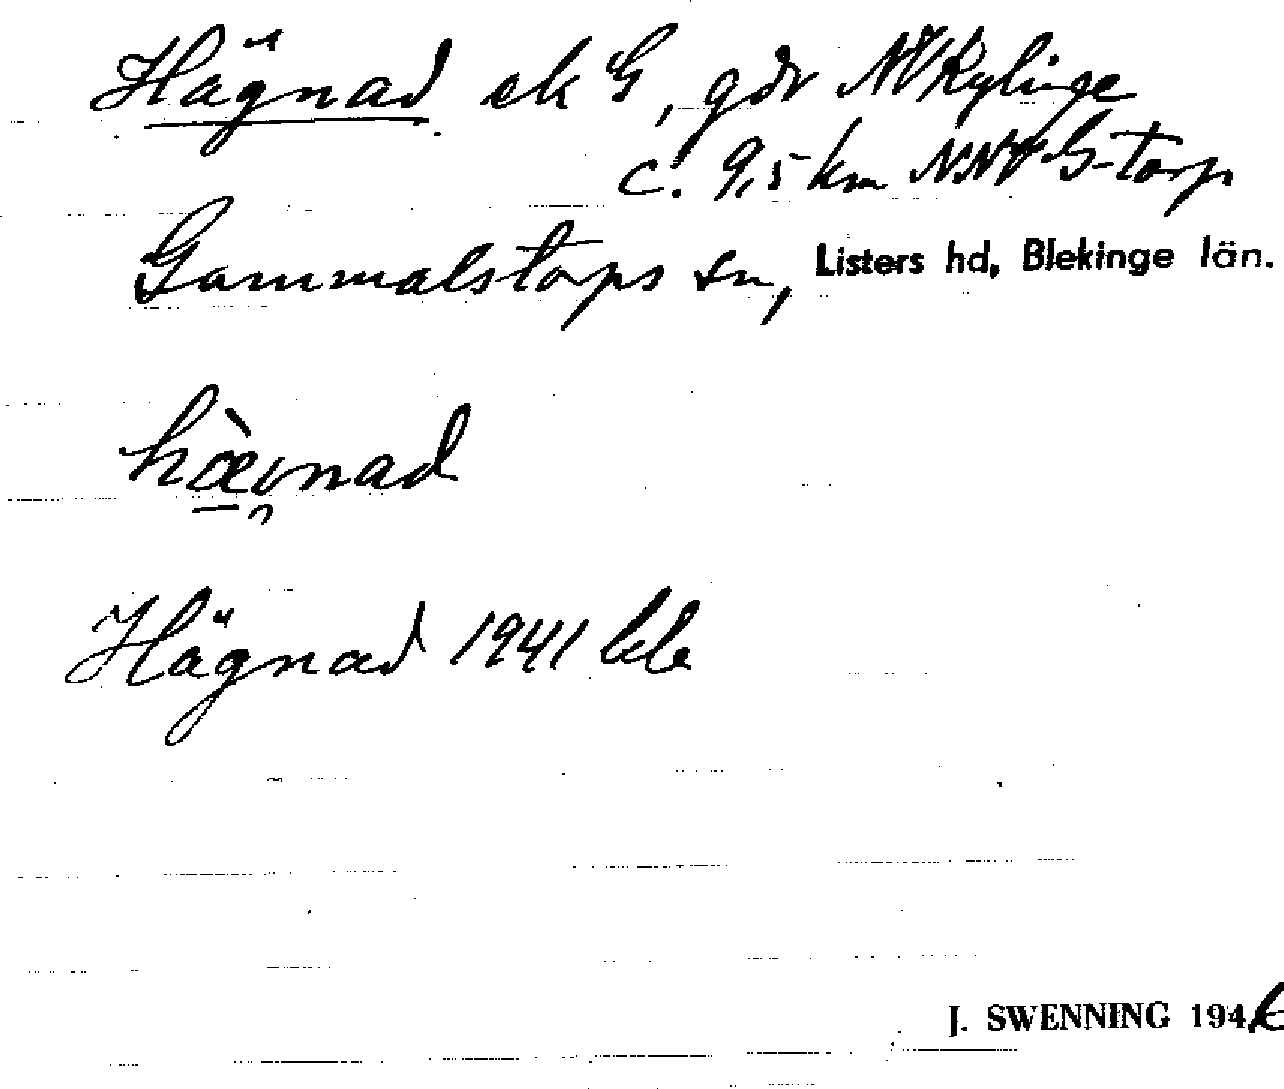 Hägnad ek G, gdr NV Kylinge
c. 9,5 km NNV G-torp
Gammalstorps sn, Listers hd, Blekinge län.
hævnad
Hägnad 1941
J. SWENNING 194